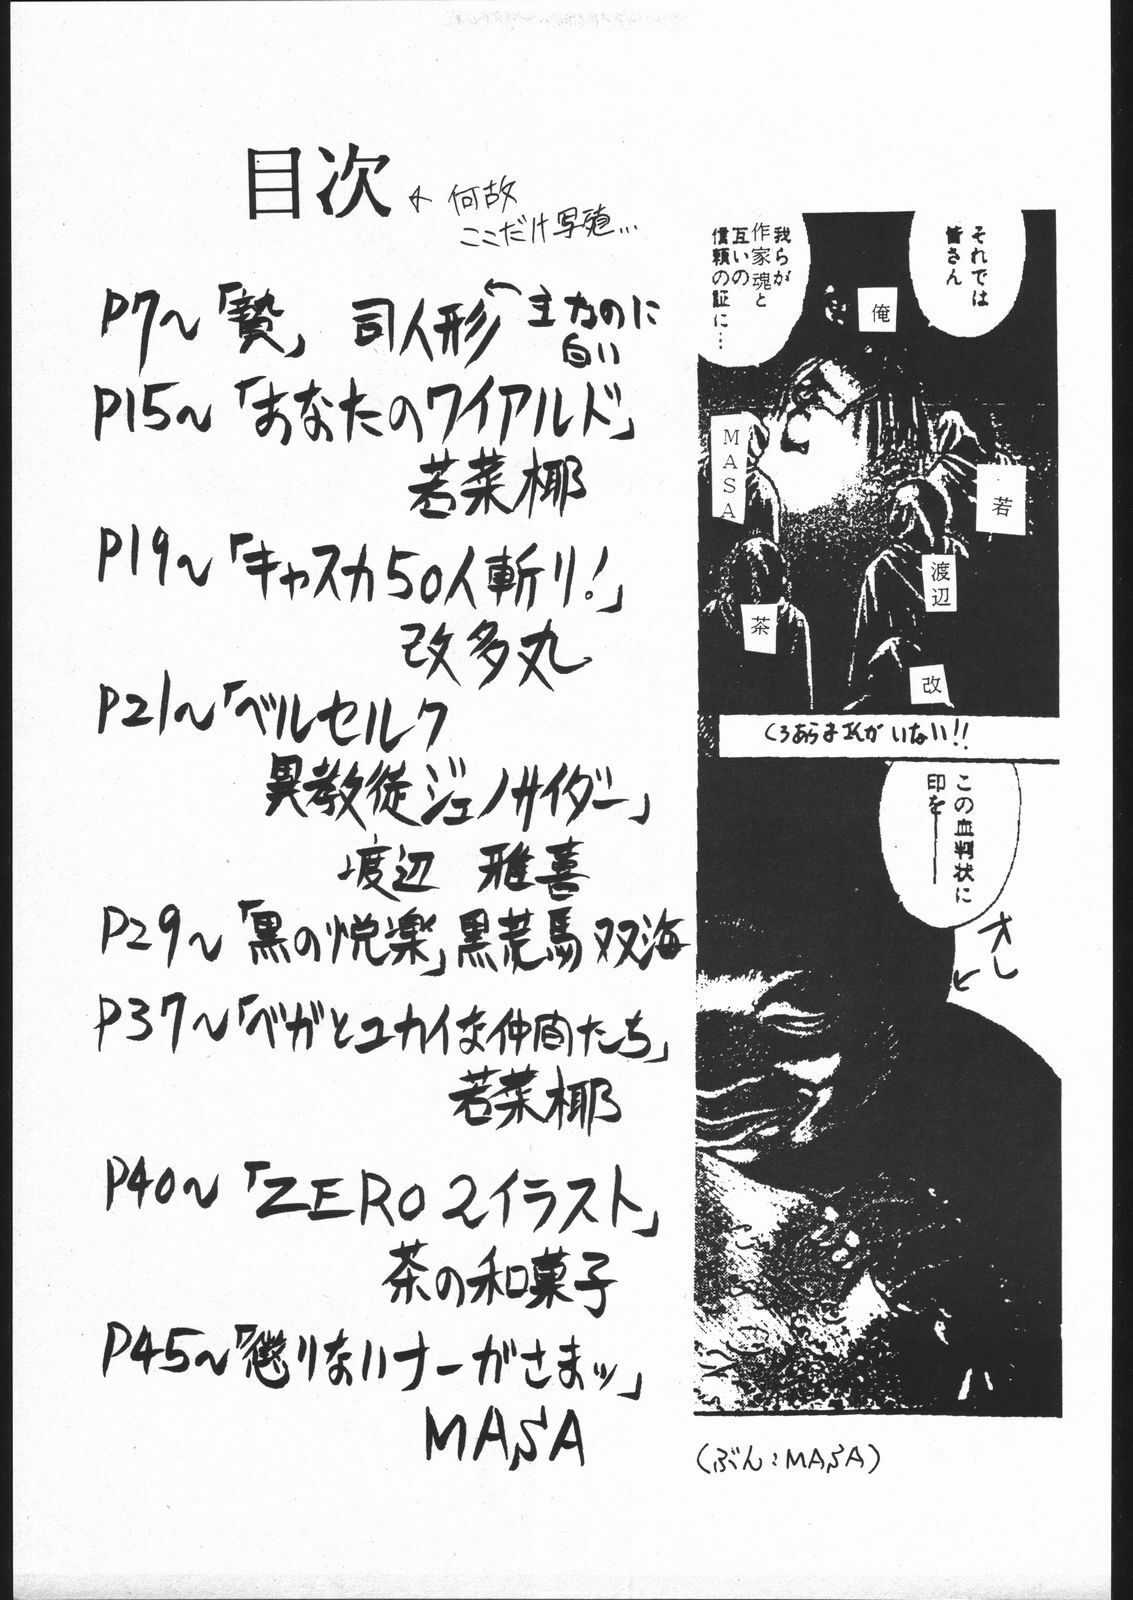 目次
何故
ここだけ写殖…
P7〜「贄」 司人形 ←主なのに
白い
P15〜「あなたのワイアルド」
若菜椰
P19〜「キャスカ50人斬り！」
改多丸
P21〜「ベルセルク
異教徒ジェノサイダー」
渡辺 雅喜
P29〜「黒の悦楽」黒荒馬双海
P37〜「ベガとユカイな仲間たち」
若菜椰
P40〜「ZERO2イラスト」
茶の和菓子
P45〜「懲りないナーガさまッ」
MASA
それでは
皆さん
我らが
作家魂と
互いの
信頼の証に…
俺
MASA
若
渡辺
茶
改
くろあらまさんがいない!!
この血判状に
印を――
オレ
(ぶん：MASA)